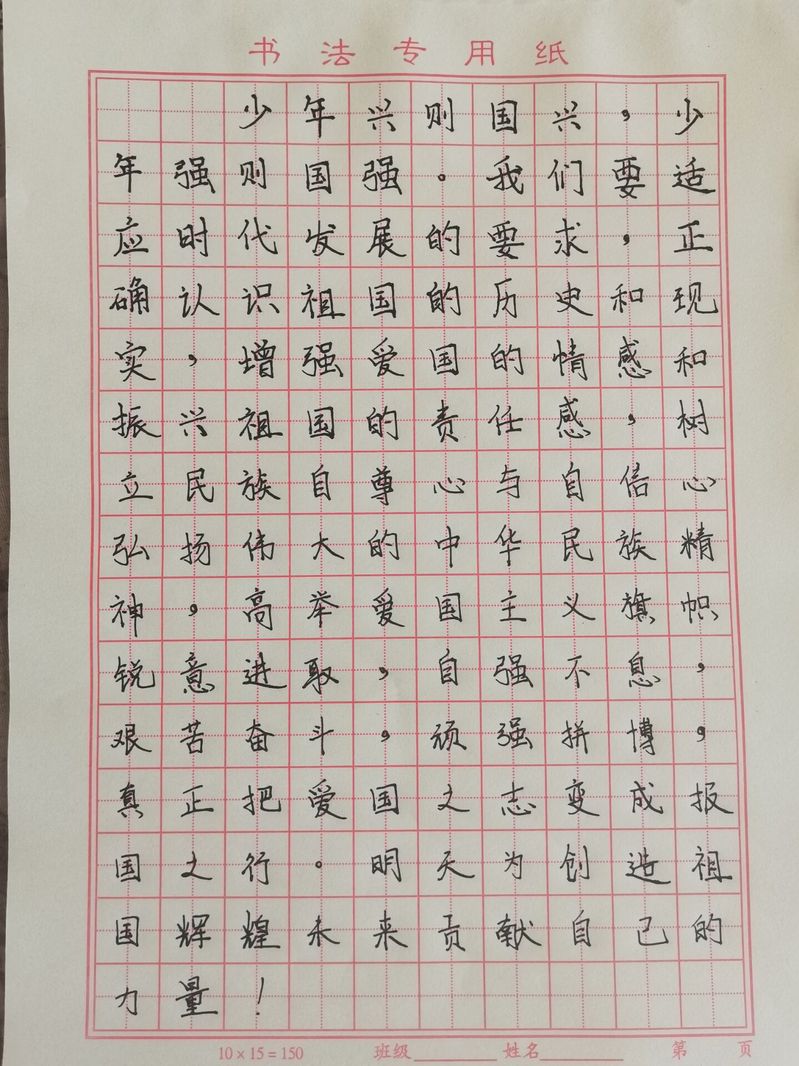 书法专用纸
少年兴则国兴，少
年强则国强。我们要适
应时代发展的要求，正
确认识祖国的历史和现
实，增强爱国的情感和
振兴祖国的责任感，树
立民族自尊心与自信心
弘扬伟大的中华民族精
神，高举爱国主义旗帜
锐意进取，自强不息，
艰苦奋斗，顽强拼博，
真正把爱国之志变成报
国之行。明天为创造祖
国辉煌未来贡献自己的
力量！
10×15=150 班级 姓名 第 页